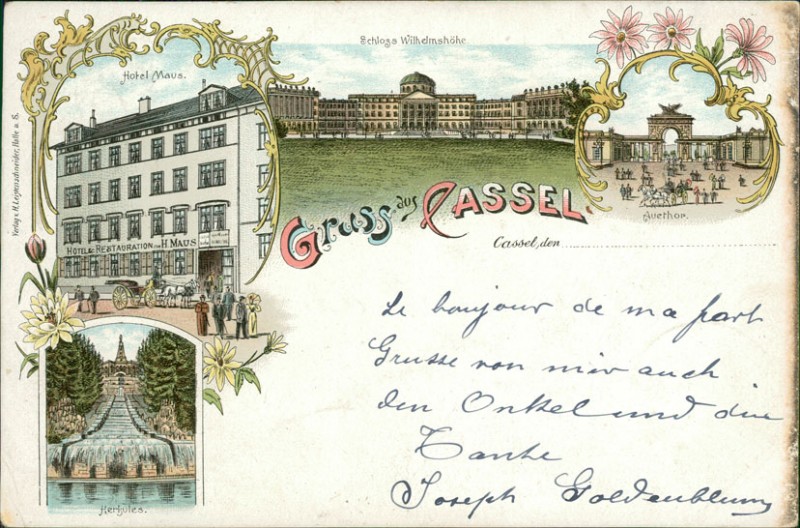 Schloss Wilhelmshöhe
Hotel Maus.
Verlag v. H. Leymeschneider, Halle a. S.
HOTEL & RESTAURATION von H. MAUS
Auethor.
Gruss aus CASSEL.
Cassel, den
Le bonjour de ma part
Grusse von mir auch
den Onkel und die
Tante
Joseph Goldenblum
Herkules.